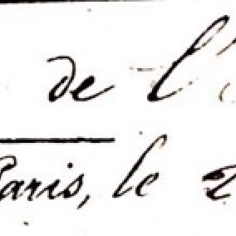 de l'
Paris, le 2